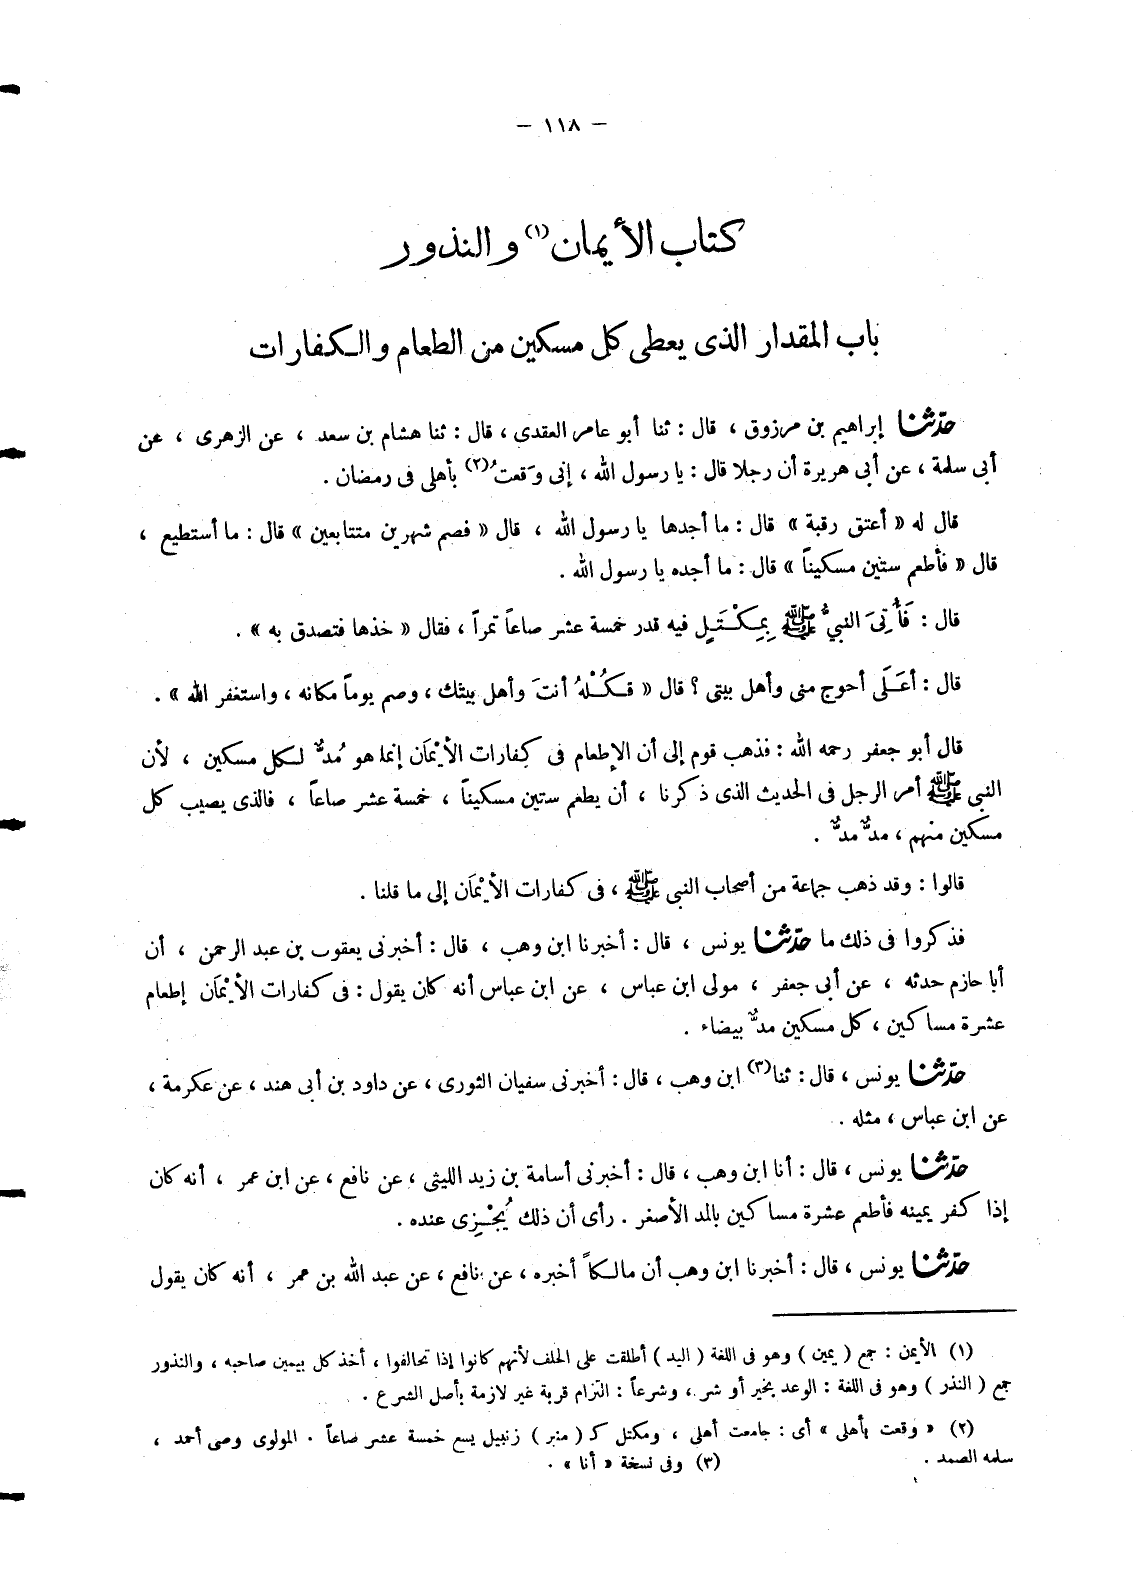 — ١١٨ —
كتاب الأيمان(١) والنذور
باب المقدار الذى يعطى كل مسكين من الطعام والكفارات
حدّثنا إبراهيم بن مرزوق ، قال : ثنا أبو عامر العقدى ، قال : ثنا هشام بن سعد ، عن الزهرى ، عن
أبى سلمة ، عن أبى هريرة أن رجلا قال : يا رسول الله ، إنى وَقعتُ(٢) بأهلى فى رمضان .
قال له « أعتق رقبة » قال : ما أجدها يا رسول الله ، قال « فصم شهرين متتابعين » قال : ما أستطيع ،
قال « فأطعم ستين مسكيناً » قال : ما أجده يا رسول الله .
قال : فَأُتِىَ النبيُّ ﷺ بِمِكْتَلٍ فيه قدر خمسة عشر صاعاً تمراً ، فقال « خذها فتصدق به » .
قال : أعَلَى أحوج منى وأهل بيتى ؟ قال « فكُلْهُ أنتَ وأهل بيتك ، وصم يوماً مكانه ، واستغفر الله » .
قال أبو جعفر رحمه الله : فذهب قوم إلى أن الإطعام فى كفارات الأيْمَان إنما هو مُدٌّ لكل مسكين ، لأن
النبى ﷺ أمر الرجل فى الحديث الذى ذكرنا ، أن يطعم ستين مسكيناً ، خمسة عشر صاعاً ، فالذى يصيب كل
مسكين منهم ، مدٌّ مدٌّ .
قالوا : وقد ذهب جماعة من أصحاب النبى ﷺ ، فى كفارات الأيْمَان إلى ما قلنا .
فذكروا فى ذلك ما حدّثنا يونس ، قال : أخبرنا ابن وهب ، قال : أخبرنى يعقوب بن عبد الرحمن ، أن
أبا حازم حدثه ، عن أبى جعفر ، مولى ابن عباس ، عن ابن عباس أنه كان يقول : فى كفارات الأيْمَان إطعام
عشرة مساكين ، كل مسكين مدٌّ بيضاء .
حدّثنا يونس ، قال : ثنا(٣) ابن وهب ، قال : أخبرنى سفيان الثورى ، عن داود بن أبى هند ، عن عكرمة ،
عن ابن عباس ، مثله .
حدّثنا يونس ، قال : أنا ابن وهب ، قال : أخبرنى أسامة بن زيد الليثى ، عن نافع ، عن ابن عمر ، أنه كان
إذا كفر يمينه فأطعم عشرة مساكين بالمد الأصغر . رأى أن ذلك يُجْزِى عنده .
حدّثنا يونس ، قال : أخبرنا ابن وهب أن مالكاً أخبره ، عن نافع ، عن عبد الله بن عمر ، أنه كان يقول
(١) الأيمن : جمع ( يمين ) وهو فى اللغة ( اليد ) أطلقت على الحلف لأنهم كانوا إذا تحالفوا ، أخذ كل بيمين صاحبه ، والنذور
جمع ( النذر ) وهو فى اللغة : الوعد بخير أو شر ، وشرعاً : التزام قربة غير لازمة بأصل الشرع .
(٢) « وقعت بأهلى » أى : جامعت أهلى ، ومكتل كـ ( منبر ) زنبيل يسع خمسة عشر صاعاً . المولوى وصى أحمد ،
سلمه الصمد . (٣) وفى نسخة « أنا » .